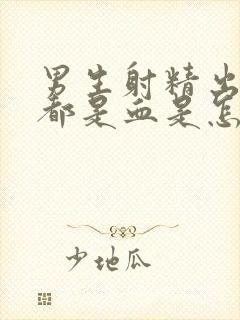 男生射精出
都是血是怎
少地瓜